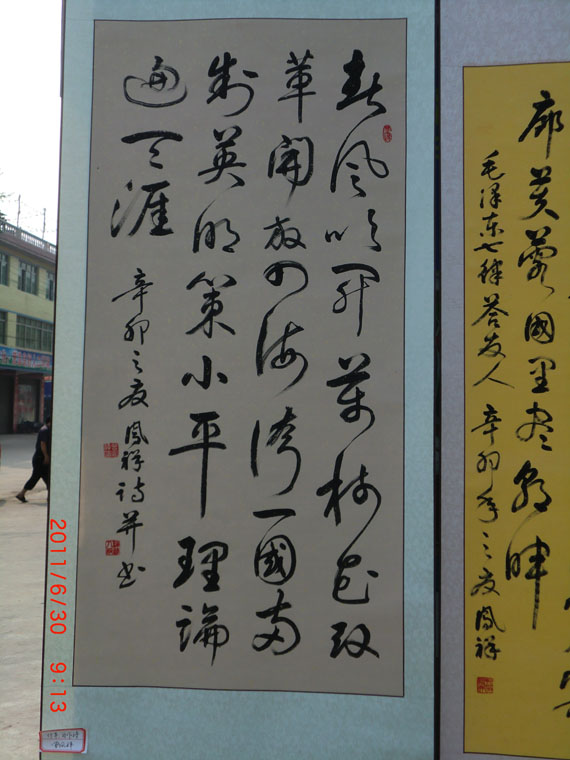 春风吹开萬树花改
革開放四海誇一國两
制英明策小平理論
遍天涯
辛卯之夏鳳祥诗并书
廓芙蓉國里尽朝晖
毛泽东七律答友人 辛卯年之夏鳳祥
2011/6/30 9:13